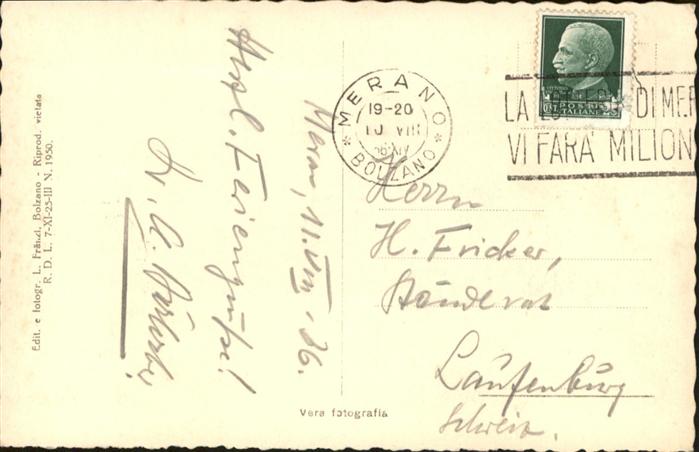 Edit. e fotogr. L. Fränzl, Bolzano - Riprod. vietata
R. D. L. 7-XI-25-III N. 1950.
Meran, 11.VIII.36.
Herzl. Feriengrüße!
Dr. A.
MERANO
19-20
10 VIII
36 XIV
BOLZANO
LA DI MER
VI FARÀ MILION
POSTE
ITALIANE
Herrn
H. Fricker,
Ständerat
Laufenburg
Schweiz.
Vera fotografia